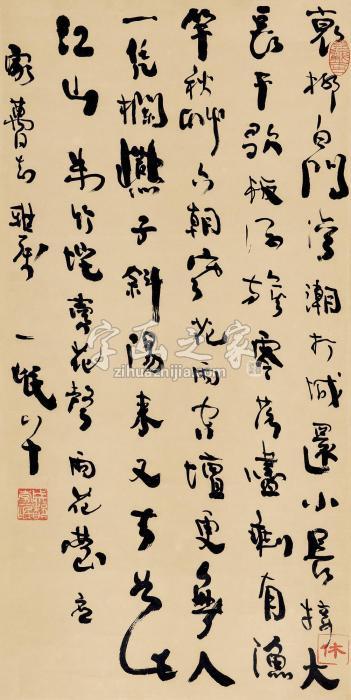 衰柳白門灣潮打城還小長接大
長干歌板酒旗零落盡剩有漁
竿秋草六朝寒花雨空壇更無人
一凭欄燕子斜陽來又去如此
江山 朱竹垞賣花聲雨花臺
家萬同志雅屬 一氓八十
字画之家
zihuazhijia.com